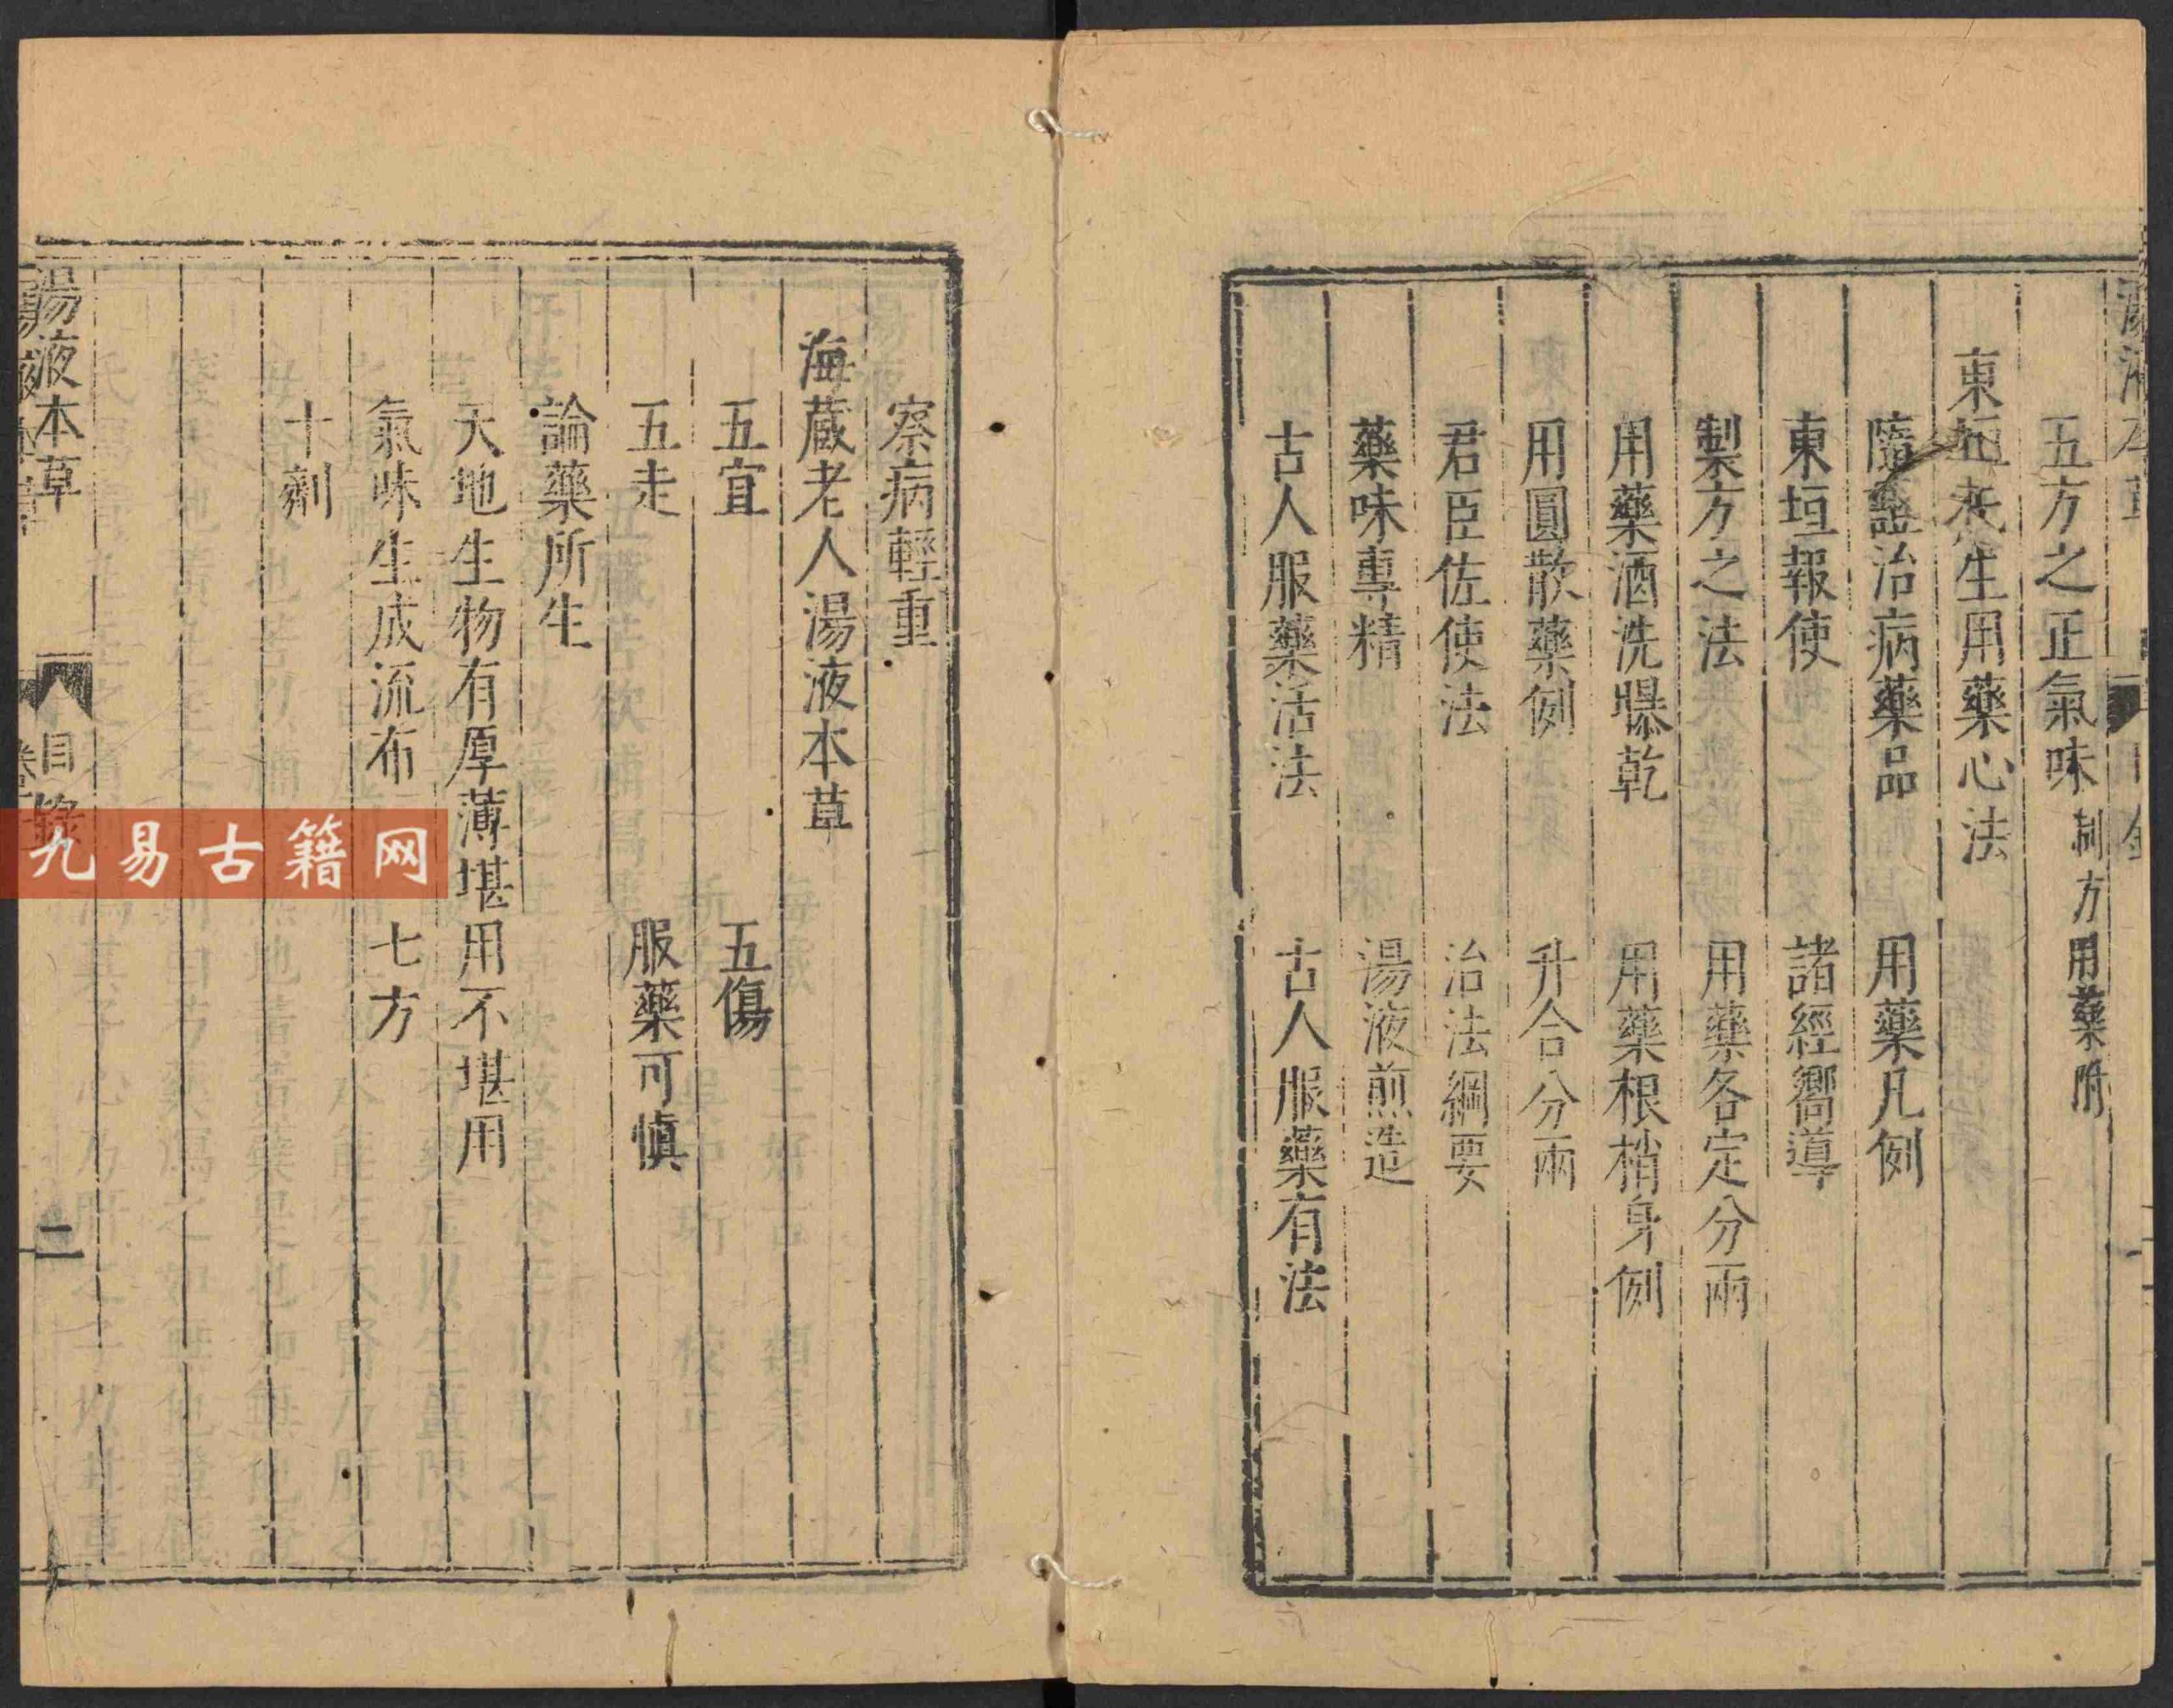 五方之正氣味 制方用藥附
東垣先生用藥心法
隨證治病藥品 用藥凡例
東垣報使 諸經嚮導
製方之法 用藥各定分兩
用藥酒洗曝乾 用藥根梢身例
用圓散藥例 升合分兩
君臣佐使法 治法綱要
藥味專精 湯液煎造
古人服藥活法 古人服藥有法
察病輕重
海蔵老人湯液本草
五宜 五傷
五走 服藥可慎
論藥所生
天地生物有厚薄堪用不堪用
氣味生成流布 七方
十劑
湯液本草 目錄 二
九易古籍网